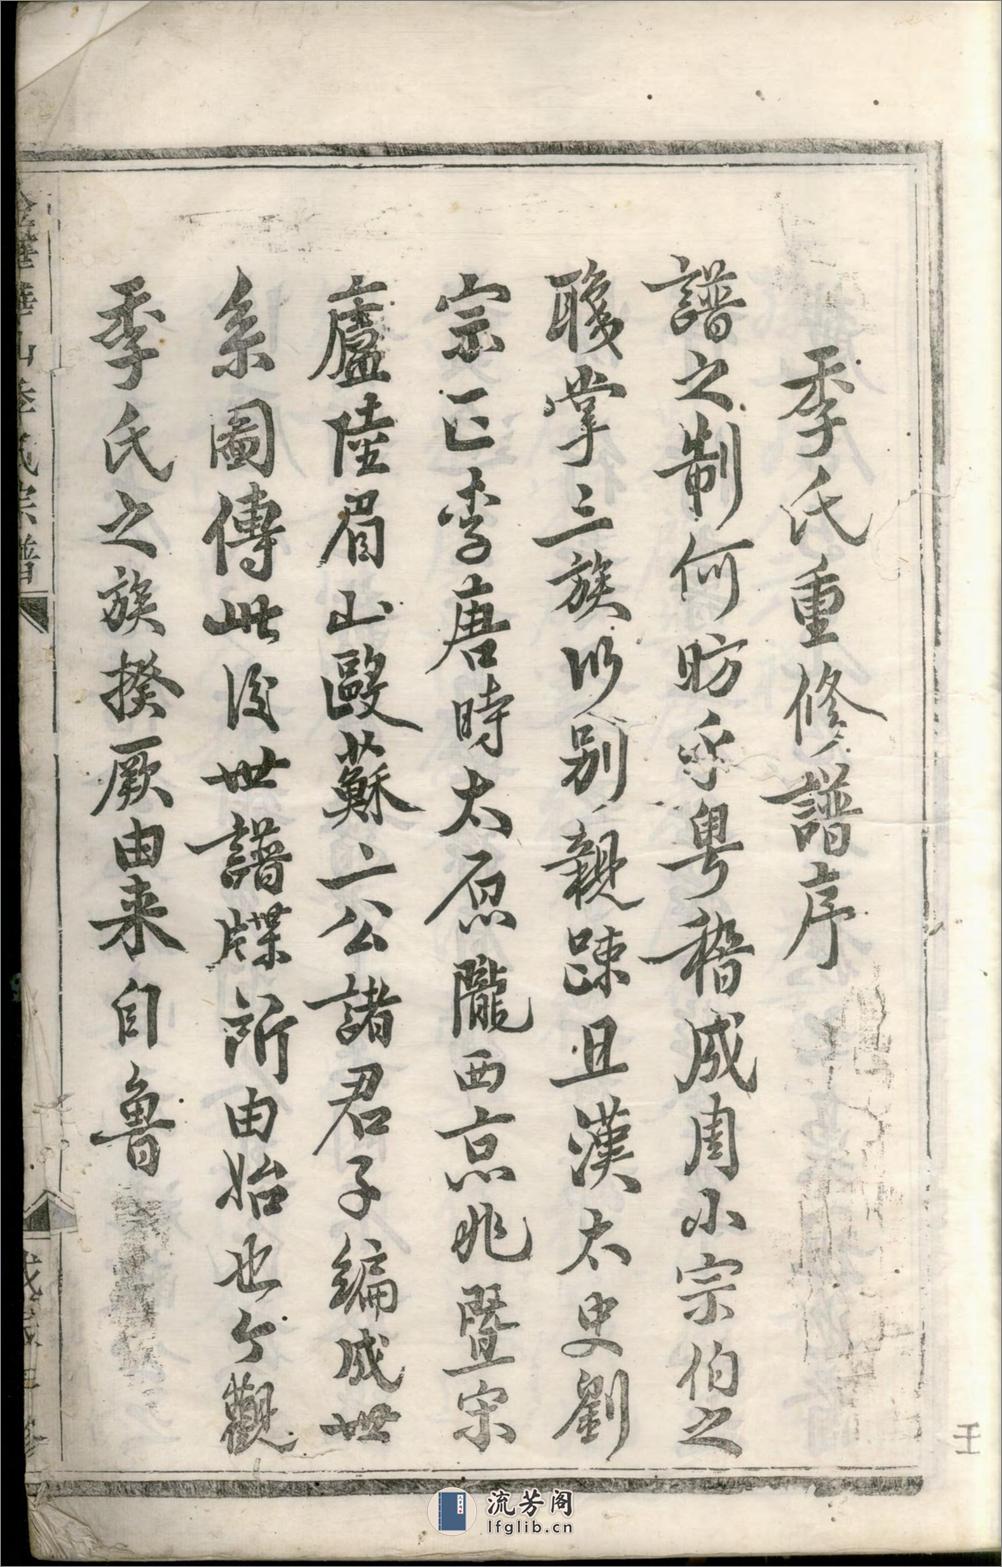 季氏重修譜序
譜之制何昉乎粤稽成周小宗伯之
職掌三族以别親疎且漢太史劉
宗正李唐時太原隴西京兆暨宋
廬陵眉山歐蘇二公諸君子編成世
系圖傳此後世譜牒所由始也今觀
季氏之族揆厥由来自魯
季氏宗譜
流芳阁
lfglib.cn